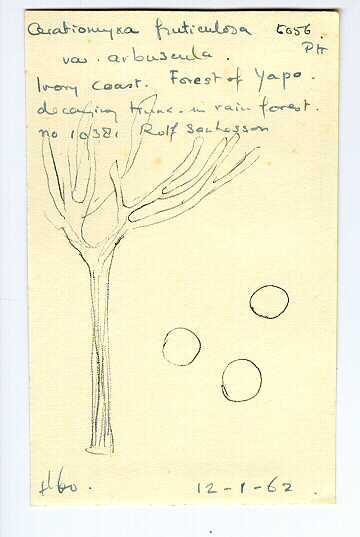 Ceratiomyxa fruticulosa 5056.
var. arbuscula. PH
Ivory Coast. Forest of Yapo.
decaying trunc. in rain forest.
no 10381 Rolf Santesson
12-1-62.